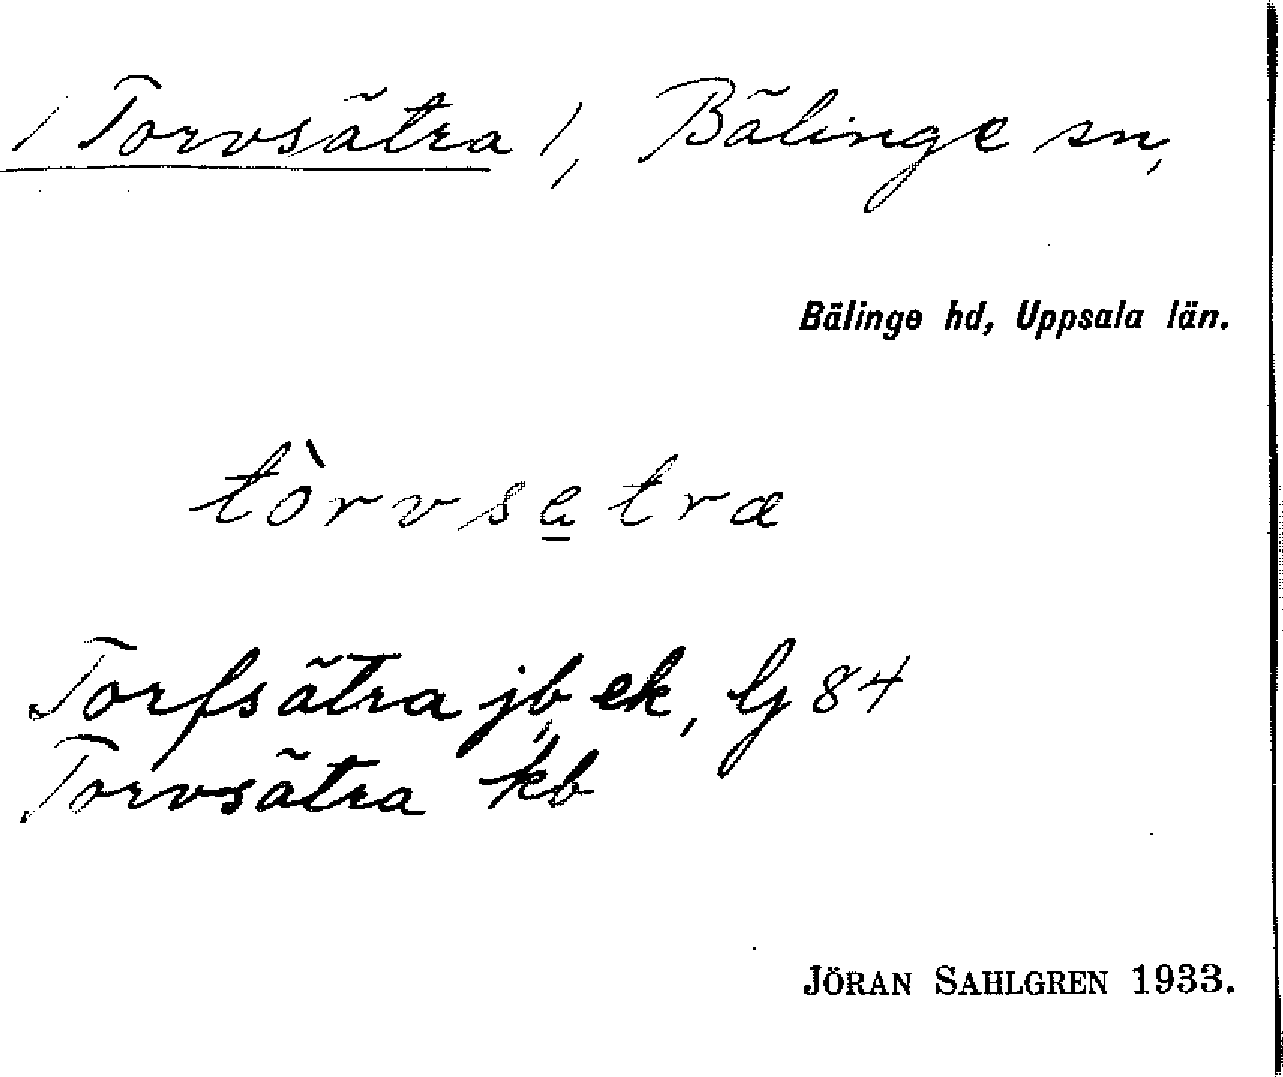 / Torvsätra /, Bälinge sn,
Bälinge hd, Uppsala län.
tòrvsa̲tra
Torfsätra jb, ek, Gj 84
Torvsätra kb
JÖRAN SAHLGREN 1933.